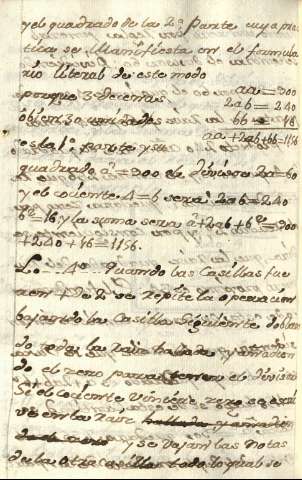 y el quadrado de la 2ª parte cuya pra
tica se Manifiesta en el formula
rio literal de este modo
porque 3 decenas aa = 900
ò bien 30 unidades 2ab = 240
es la 1ª parte y su bb = 16
aa + 2ab + bb = 1156
quadrado a² = 900 el divisor 2a = 60
y el cociente 4 = b será 2ab = 240
b² = 16 y la suma sera a² + 2ab + b² = 900
+ 240 + 16 = 1156.
Lo 4º Quando las Casillas fue
ren + de 2 se repite la operacion
bajando la Casilla Siguiente doblan
do toda la raiz hallada y añadien
do el zero para tener el divisor
Si el cociente viniere zero se escri
ve en la raiz
y se bajan las notas
de la otra casilla todo lo qual se